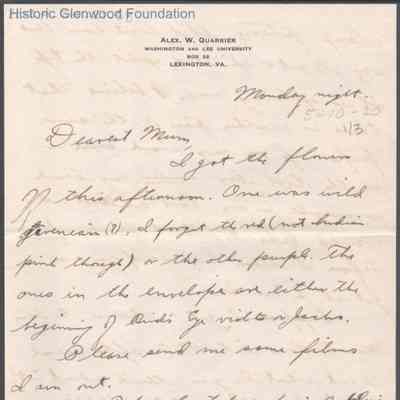 Historic Glenwood Foundation
ALEX. W. QUARRIER
WASHINGTON AND LEE UNIVERSITY
BOX 52
LEXINGTON, VA.
Monday night.
5-10-
1/3
Dearest Mum,
I got the flowers
this afternoon. One was wild
(?), I forget the red (not Indian
pink though) or the other purple. The
ones in the envelope are either the
beginning of Bird's Eye
Please send me some films
I am out.